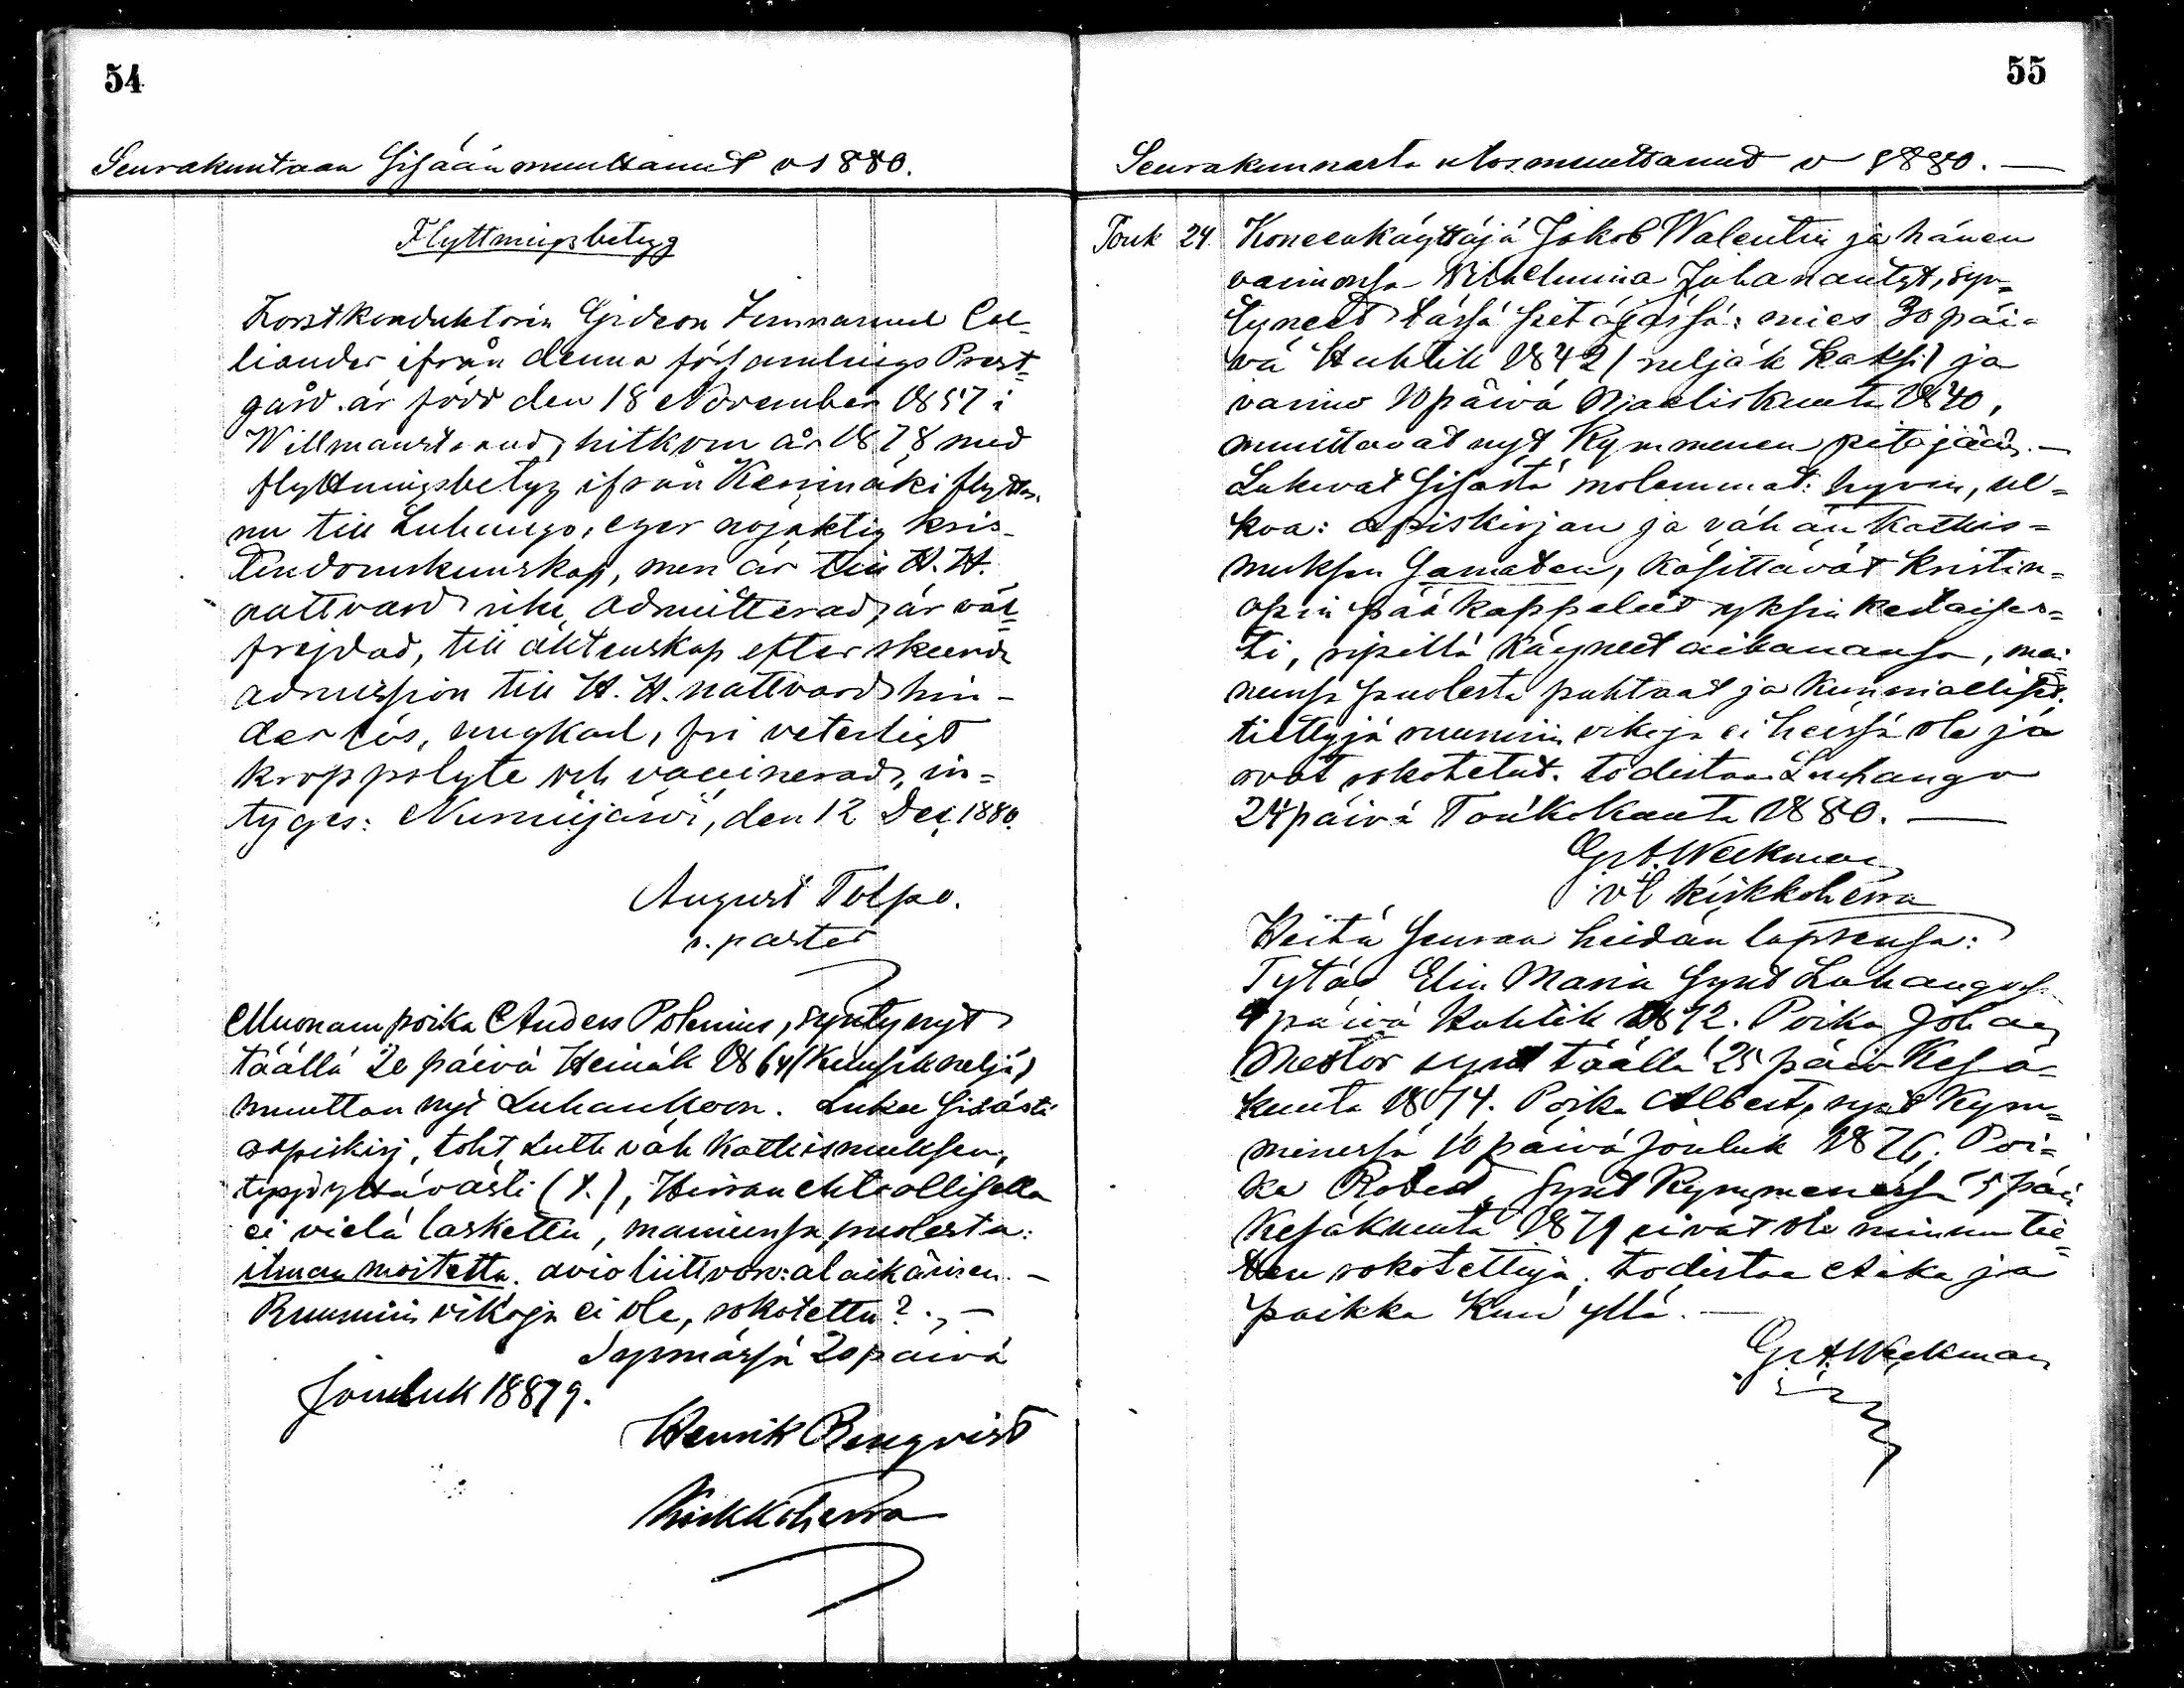 54
Seurakuntaan Sisäänmuuttanut v 1880.
Flyttningsbetyg
Forstkonduktorin Gideon Immanuel Cal-
liander ifrån denna församlings Prest-
gård är född den 18 November 1857 i
Willmanstrand, hitkom år 1878 med
flyttningsbetyg ifrån Kerimäki flyttar
nu till Luhango, eger nöjaktig kris-
tendomskunskap, men är till H. H.
nattvard icke admitterad, är väl-
frejdad, till äktenskap efter skeende
admission till H. H. nattvard hin-
derlös, ungkarl, fri veterligt
kroppslyte och vaccinerad, in-
tyges: Nurmijärvi, den 12 Dec 1880.
August Tolpo.
v. pastor
Muonampoika Anders Polenius, syntynyt
täällä 20 päivä Heinäk 1864 (Kuusik neljä)
muuttaa nyt Luhankoon. Lukee Sisästä
aapiskirj, toht Luth väh Katkismuksen,
tyydyttävästi (t.), Herran ehtoollisella
ei vielä laskettu, maineensa puolesta:
ilman moitetta. avioliittoon: alaikäinen. -
Ruumiin vikoja ei ole, rokotettu? . -
Sysmässä 20 päivä
Jouluk 18879.
Henrik Renqvist
Kirkkoherra
55
Seurakunnasta ulosmuuttanud v 1880. —
Touk 24. Koneenkäyttäjä Jakob Walentin ja hänen
vaimonsa Wilhelmina Juhanantyt, syn-
tyneet tässä pitäjässä: mies 30 päi-
vä Huhtik 1842 (neljäk kaksi) ja
vaimo 10 päivä Maaliskuuta 1840,
muuttavat nyt Kymmenen pitäjään. —
Lukevat Sisästä molemmat: hyvin, ul-
koa: apiskirjan ja vähän Katkis-
muksen Samaten, käsittävät kristin-
opin pääkappaleet yksinkertaises-
ti, ripillä käyneet aikananSa, mai-
neensa puolesta puhtaat ja kunnialliset,
tiettyjä ruumiin vikoja ei heissä ole ja
ovat rokotetut. todistaa Luhango
24 päivä Toukokuuta 1880. —
G. A. Weckman
vt kirkkoherra
Heitä Seuraa heidän lapsensa:
Tytär Elin Maria Synt Luhangos
4 päivä Huhtik 1872. Poika Johan
Nestor synt täällä 25 päiv Kesä-
kuuta 1874. Poika Albert, synt Kym-
menessä 10 päivä Jouluk 1876. Poi-
ka Robert, Synt Kymmenessä 5 päi
Kesäkuuta 1879 eivät ole minun tie-
täen rokotettuja. todistaa Aika ja
paikka kuin yllä. —
G. A. Weckman